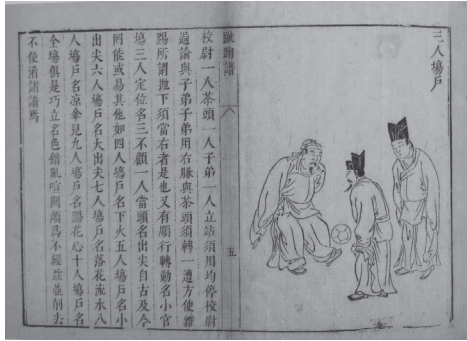 三人場戶
蹴踘譜
五
校尉一人茶頭一人子弟一人立站須用均停校尉
過論與子弟子弟用右膁與茶頭須轉一遭方使雜
踢所謂拋下須當右者是也又有順行轉動名小官
場三人定位名三不顧一人當頭名出尖自古及今
罔能或易其他如四人場戶名下火五人場戶名小
出尖六人場戶名大出尖七人場戶名落花流水八
人場戶名涼傘兒九人場戶名踢花心十人場戶名
全場俱是巧立名色錯亂喧鬧頗為不經茲並削去
不使淆諸譜焉